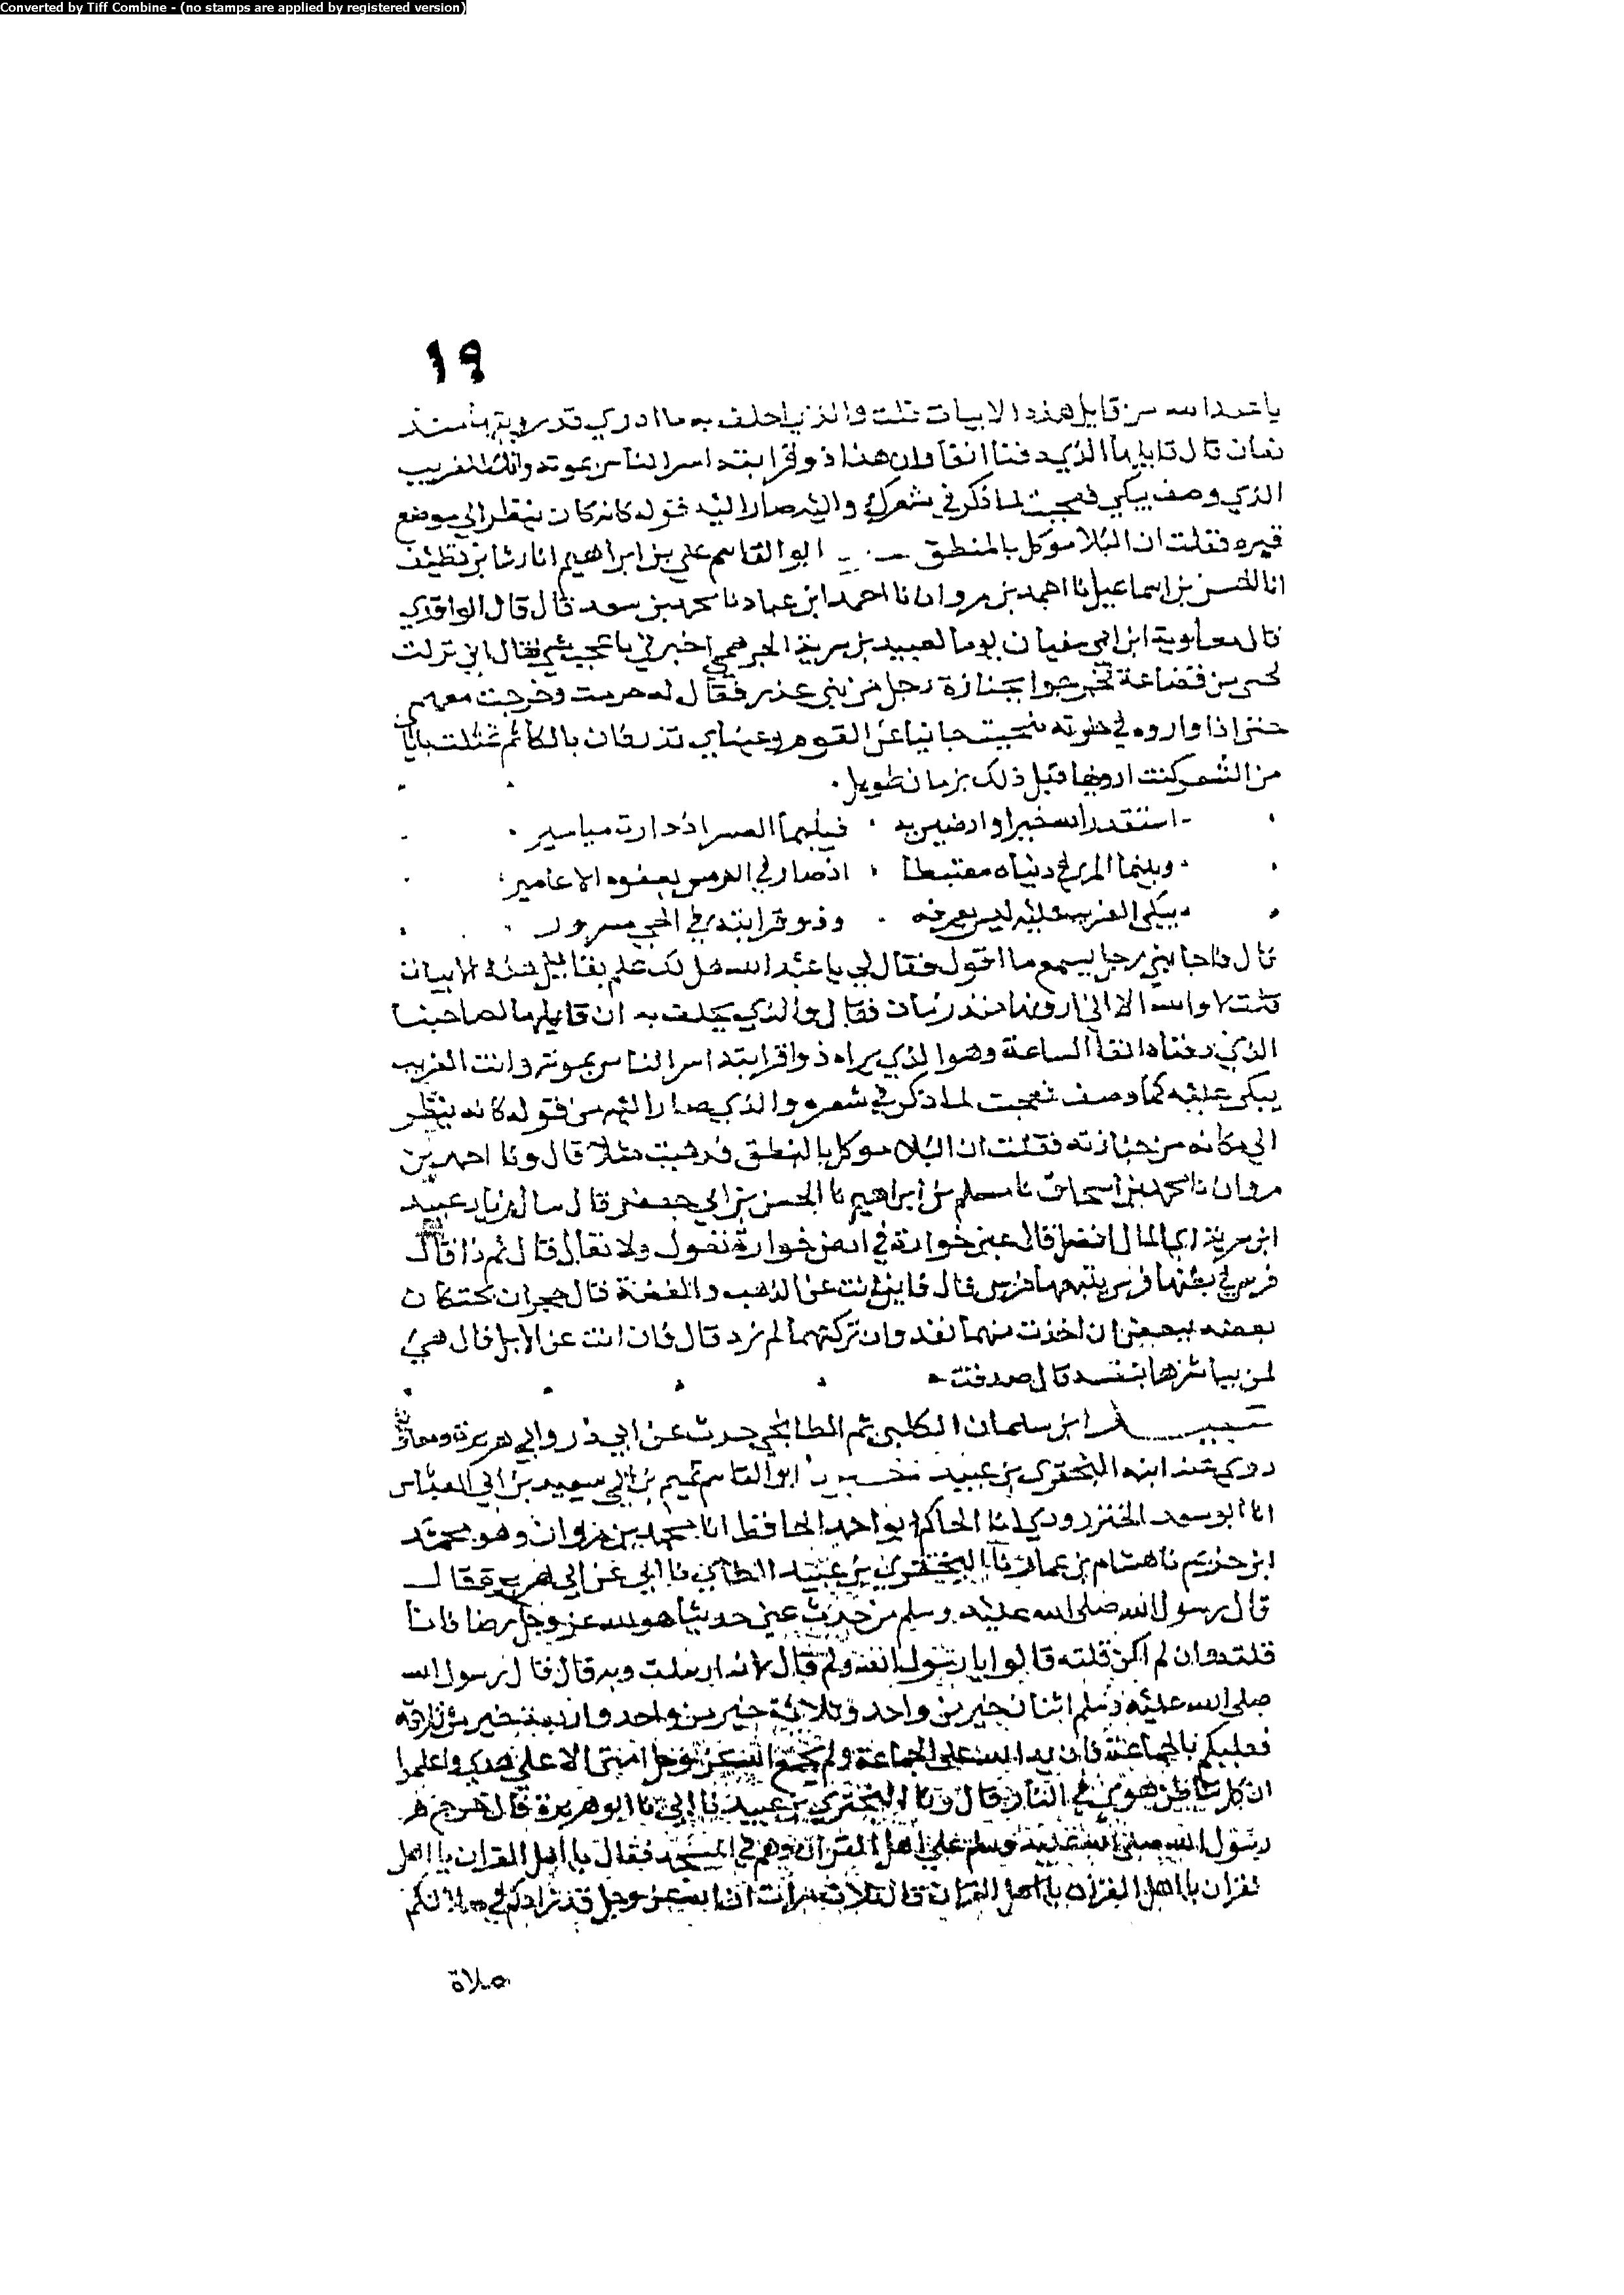 Converted by Tiff Combine - (no stamps are applied by registered version)
١٩
يا عبد الله من قايل هذه الابيات قلت والذي احلف به ما ادري قد رويتها منذ
زمان قال قايلها الذي دفنا انفا وان هذا ذو قرابته اسر الناس بموته وانك الغريب
الذي وصف يبكي فعجبت لما ذكر في شعره والذي صار اليه قوله كانه كان ينظر الي موضع
قبره فقلت ان البلا موكل بالمنطق ابو القاسم علي بن ابراهيم انا رشا بن نظيف
انا الحسن بن اسماعيل نا احمد بن مروان نا احمد ابن عباد نا محمد بن سعد قال قال الواقدي
قال معاوية ابن ابي سفيان يوما لعبيد بن سرية الجرهمي اخبرني باعجب شي فقال اني نزلت
بحي من قضاعة فخرجوا بجنازة رجل من بني عذره فقال له حريث وخرجت معهم
حتي اذا واروه في حفرته تنحيت جانبا عن القوم وعيناي تذرفان بالبكا ثم تمثلت بابيات
من الشعر كنت ارويها قبل ذلك بزمان طويل
استقدر الله خيرا وارضين به فبينما العسر اذ دارت مياسير
وبينما المر في دنياه مغتبطا اذ صار في الرمس يعفوه الاعاصير
يبكي الغريب عليه ليس يعرفه وذو قرابته في الحي مسرور
قال فاجابني رجل يسمع ما اقول فقال لي يا عبد الله هل لك علم بقايل هذه الابيات
قلت لا والله الا اني ارويها منذ زمان فقال والذي يحلف به ان قايلها لصاحبنا
الذي دفناه انفا الساعة وهو الذي يراه ذوا قرابته اسر الناس بموته وانت الغريب
يبكي عليه كما وصف فعجبت لما ذكر في شعره والذي صار اليه من قوله كانه ينظر
الي مكانه من جنازته فقلت ان البلا موكل بالمنطق فذهبت مثلا قال ونا احمد بن
مروان نا محمد بن اسحاق نا مسلم بن ابراهيم نا الحسن بن ابي جعفر قال سال زياد عبيد
ابن سرية اي المال افضل قال عين خرارة في ارض خوارة تعول ولا تعال قال ثم ذا قال
فرس في بطنها فرس يتبعها فرس قال فاين انت عن الذهب والفضة قال حجران يحتكان
بعضه ببعض ان اخذت منهما نفد وان تركتهما لم تزد قال فان انت عن الابل قال هي
لمن يباشرها بنفسه قال صدقت
عبيد ابن سلمان الكلبي ثم الطابخي حدث عن ابي ذر وابي هريرة ومعاوية
روي عنه ابنه البختري بن عبيد ابو القاسم تميم بن ابي سعيد بن ابي العباس
انا ابو سعد الخنزرودي انا الحاكم ابو احمد الحافظ انا محمد بن مروان وهو محمد
ابن خزيم نا هشام بن عمار نا البختري بن عبيد الطابي نا ابي عن ابي هريرة قال
قال رسول الله صلى الله عليه وسلم من حدث عني حديثا هو لله عز وجل رضا فانا
قلته وان لم اكن قلته قالوا يا رسول الله ولم قال لانه ارسلت وبه قال قال رسول الله
صلى الله عليه وسلم اثنان خير من واحد وثلاثة خير من واحد واربعة خير من ثلاثة
فعليكم بالجماعة فان يد الله على الجماعة ولم يجمع الله عز وجل امتي الا على هدي واعلموا
ان كل شاطن هوي في النار قال ونا البختري بن عبيد نا ابي نا ابو هريرة قال خرج
رسول الله صلى الله عليه وسلم علي اهل القران وهم في المسجد فقال يا اهل القران يا اهل
القران يا اهل القران يا اهل القران قال ثلاث مرات ان الله عز وجل قد زادكم في صلاتكم
صلاة